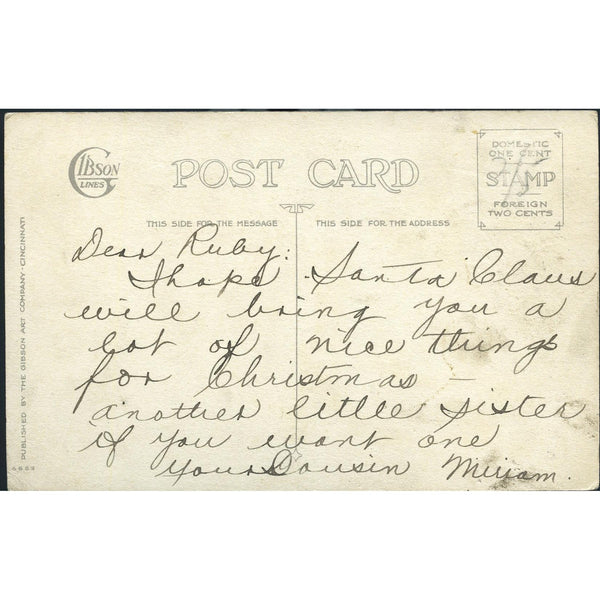 GIBSON
LINES
POST CARD
DOMESTIC
ONE CENT
STAMP
FOREIGN
TWO CENTS
THIS SIDE FOR THE MESSAGE
THIS SIDE FOR THE ADDRESS
Dear Ruby:
I hope Santa Claus
will bring you a
lot of nice things
for Christmas —
another little sister
if you want one
Your Cousin Miriam.
PUBLISHED BY THE GIBSON ART COMPANY - CINCINNATI